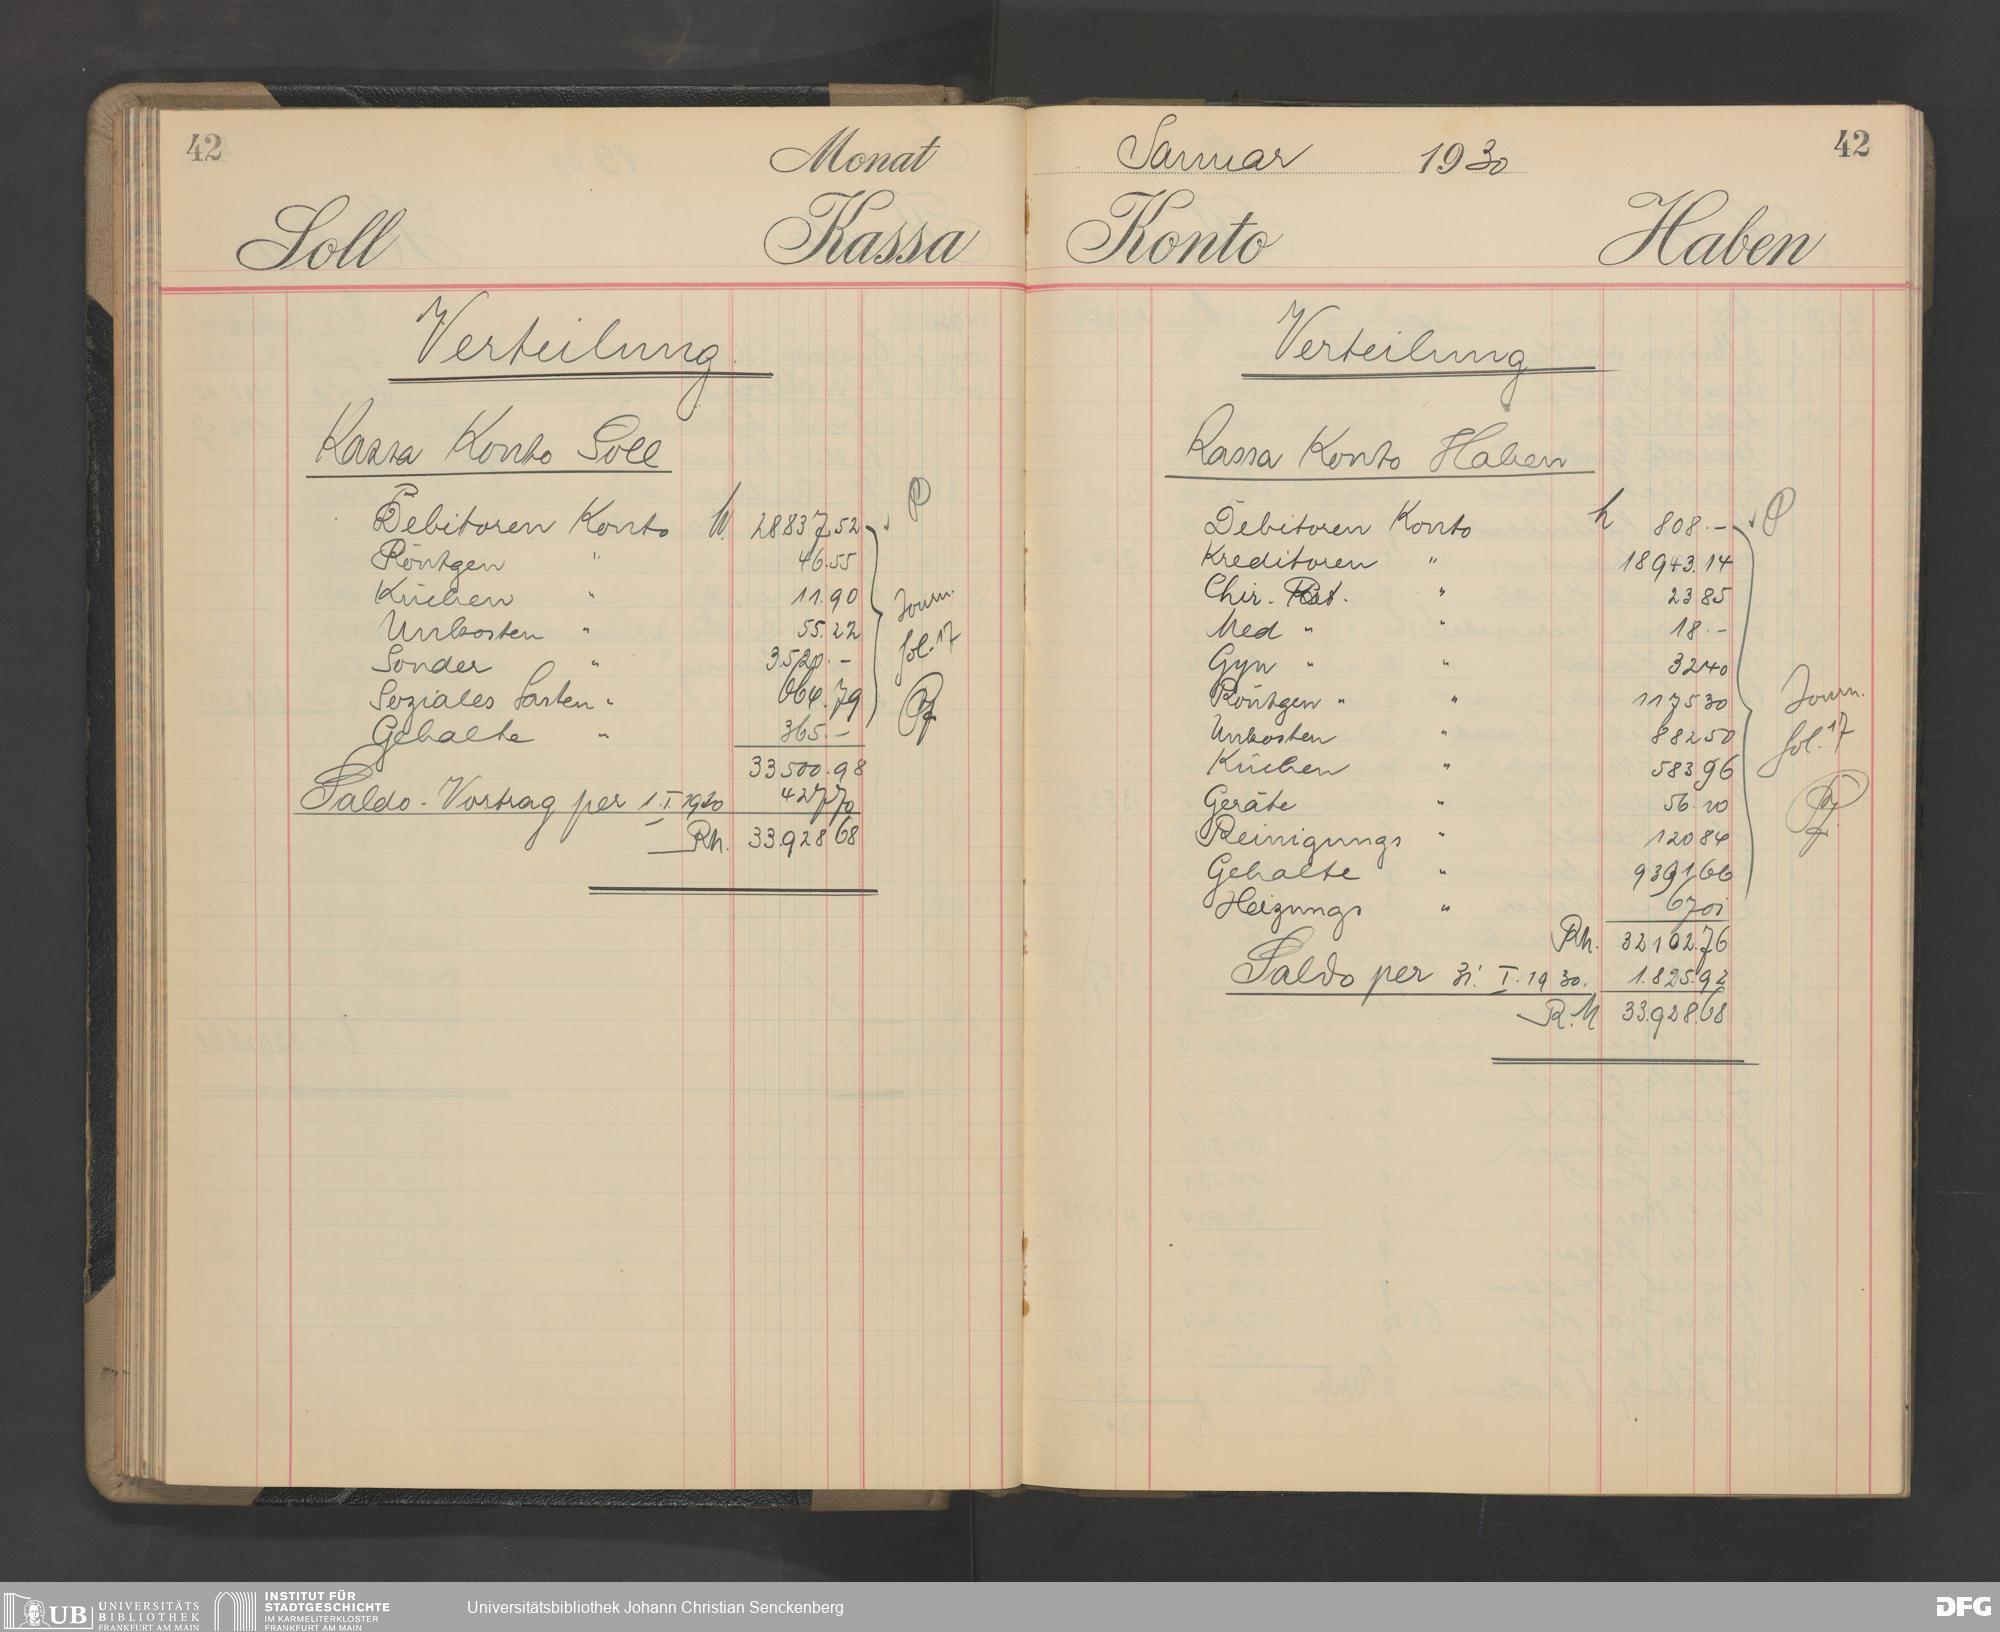 42
Monat
Soll
Kassa
Verteilung
Kassa Konto Soll
Debitoren Konto 28837,52
Röntgen " 46.55
Küchen " 11.90
Unkosten " 55.22
Sonder " 3520.-
Soziales Lasten " 664.79
Gehalte " 365.-
33500.98
Saldo-Vortrag per 1.I.1930 427,70
Rm. 33.928 68
Journ.
fol. 17
Januar 1930
42
Konto
Haben
Verteilung
Kassa Konto Haben
Debitoren Konto 808.-
Kreditoren " 18943.14
Chir. Pat. " 23 85
Med " " 18.-
Gyn " " 32 40
Röntgen " " 1175 30
Unkosten " 882 50
Küchen " 583 96
Geräte " 56.10
Reinigungs " 120 84
Gehalte " 9391,66
Heizungs " 67 01
Rm. 32102.76
Saldo per 31. I. 1930. 1.825.92
R.M 33.928.68
Journ.
fol. 17
UB
UNIVERSITÄTS
BIBLIOTHEK
FRANKFURT AM MAIN
INSTITUT FÜR
STADTGESCHICHTE
IM KARMELITERKLOSTER
FRANKFURT AM MAIN
Universitätsbibliothek Johann Christian Senckenberg
DFG